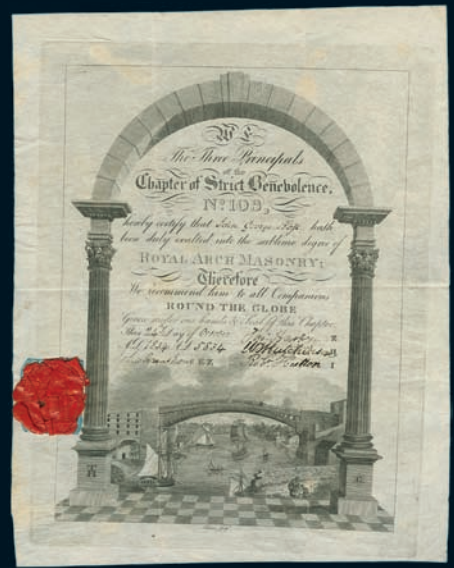 WE
The Three Principals
of the
Chapter of Strict Benevolence,
No. 109,
hereby certify that John George hath
been duly exalted into the sublime degree of
ROYAL ARCH MASONRY;
Therefore
We recommend him to all Companions
ROUND THE GLOBE
Given under our hands & Seal of this Chapter
This 24 Day of October
AD 1834 AL 5834
Z
H
E.Z
I